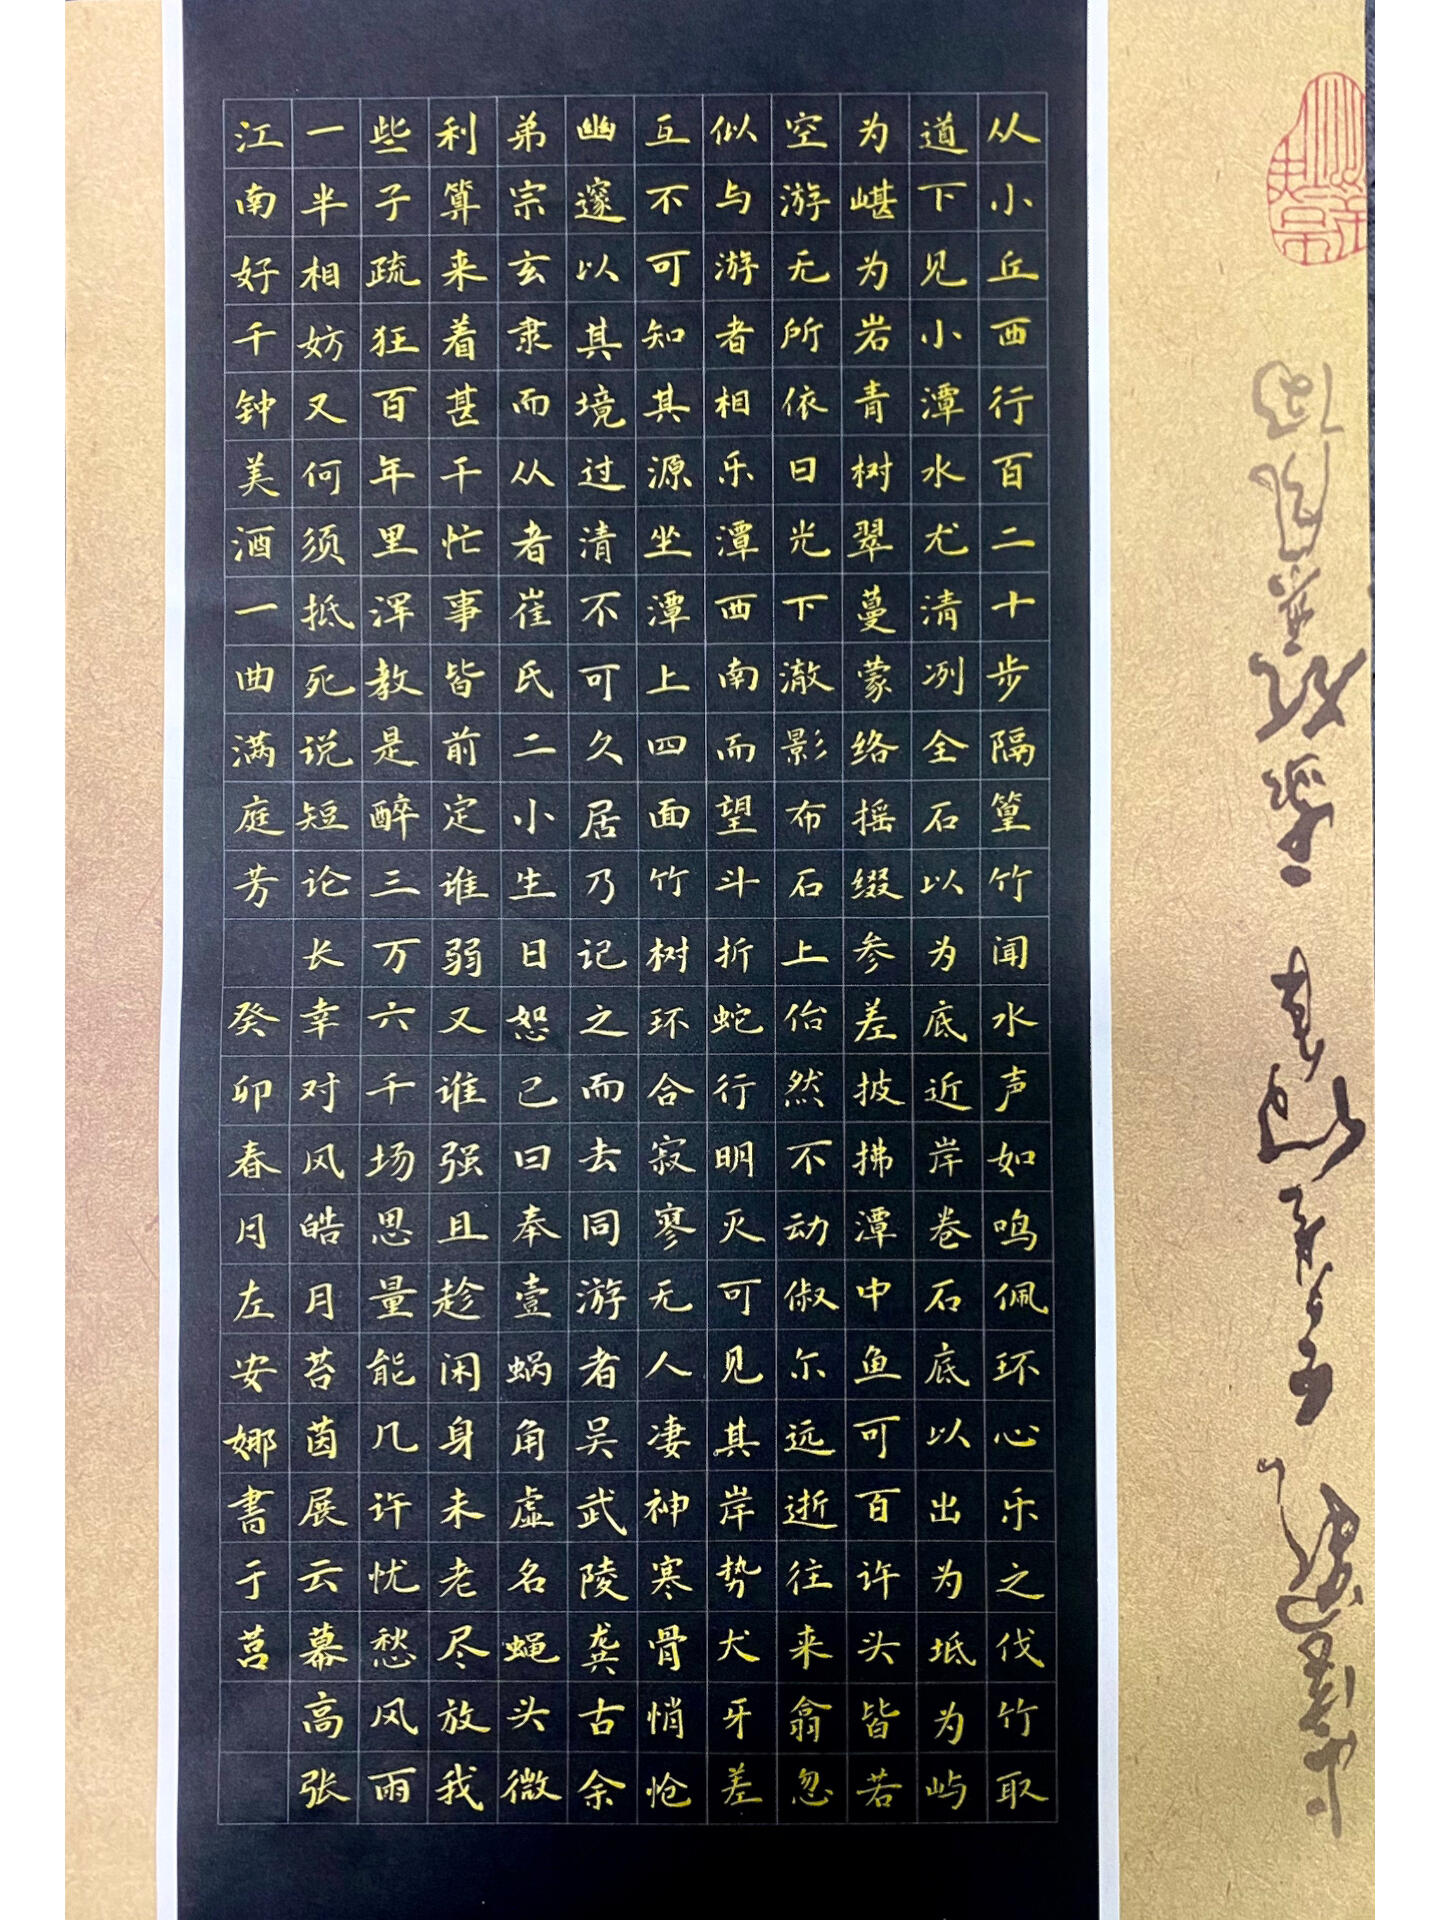 从小丘西行百二十步隔篁竹闻水声如鸣佩环心乐之伐竹取
道下见小潭水尤清冽全石以为底近岸卷石底以出为坻为屿
为嵁为岩青树翠蔓蒙络摇缀参差披拂潭中鱼可百许头皆若
空游无所依日光下澈影布石上佁然不动俶尔远逝往来翕忽
似与游者相乐潭西南而望斗折蛇行明灭可见其岸势犬牙差
互不可知其源坐潭上四面竹树环合寂寥无人凄神寒骨悄怆
幽邃以其境过清不可久居乃记之而去同游者吴武陵龚古余
弟宗玄隶而从者崔氏二小生日恕己曰奉壹蜗角虚名蝇头微
利算来着甚千忙事皆前定谁弱又谁强且趁闲身未老尽放我
些子疏狂百年里浑教是醉三万六千场思量能几许忧愁风雨
一半相妨又何须抵死说短论长幸对风皓月苔茵展云幕高张
江南好千钟美酒一曲满庭芳 癸卯春月左安娜書于莒